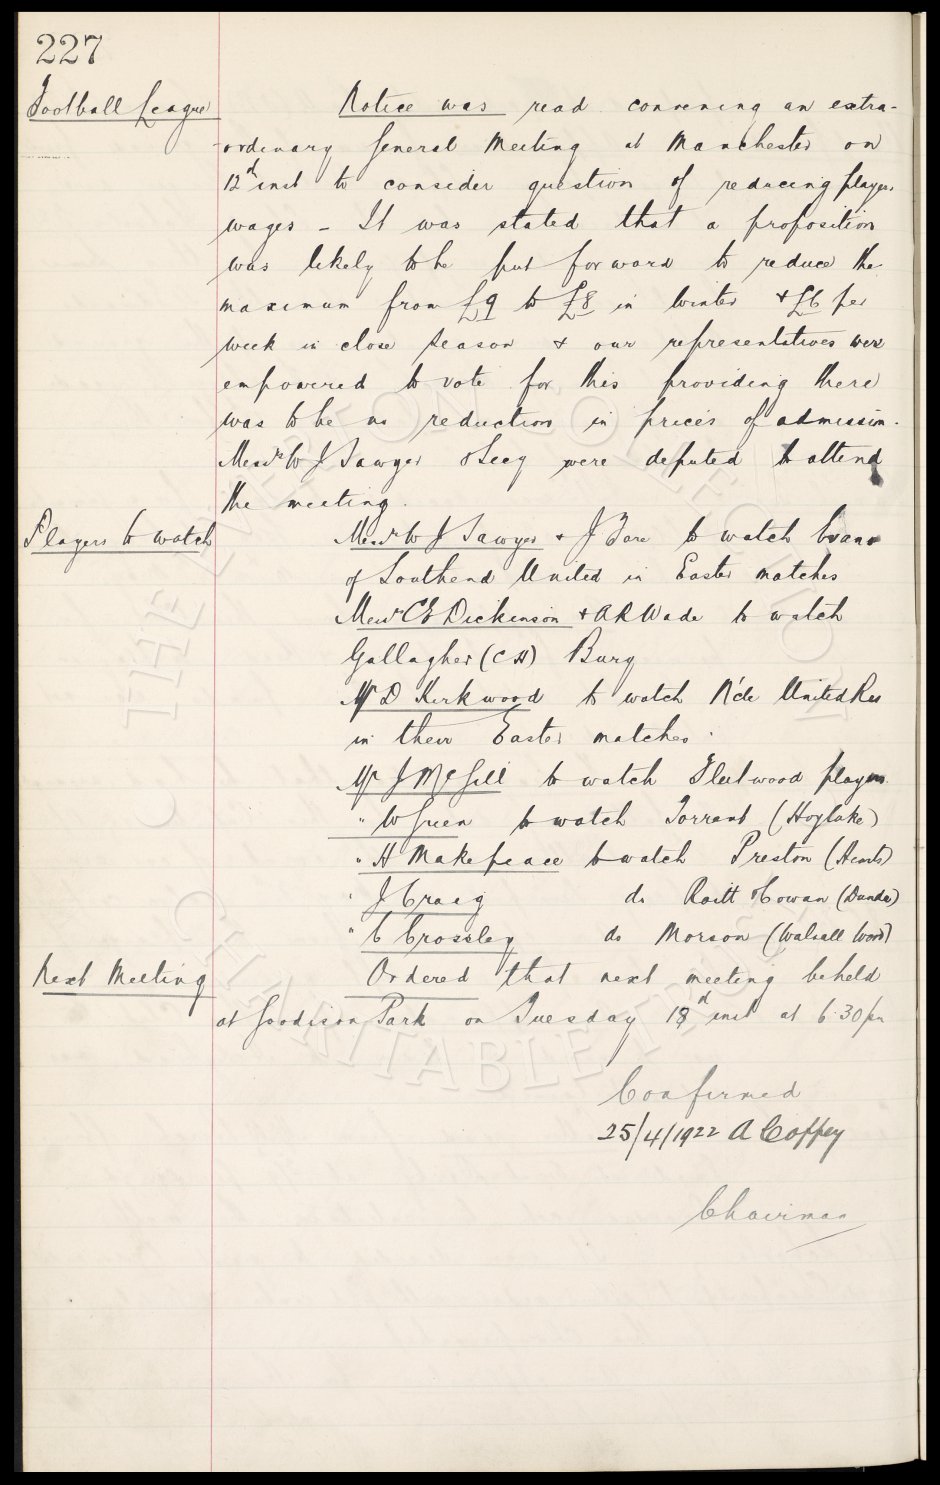 227
Football League
Notice was read convening an extra-
ordinary General Meeting at Manchester on
12th inst to consider question of reducing players
wages - It was stated that a proposition
was likely to be put forward to reduce the
maximum from £9 to £8 in Winter & £6 per
week in close season & our representatives were
empowered to vote for this providing there
was to be no reduction in prices of admission.
Messrs W J Sawyer & Clegg were deputed to attend
the meeting.
Players to watch
Messrs W J Sawyer & J Bare to watch Evans
of Southend United in Easter matches
Messrs C E Dickinson & A R Wade to watch
Gallagher (C H) Bury
Mr D Kirkwood to watch N'cle United Res
in their Easter matches.
Mr J McGill to watch Fleetwood players
" W Green to watch Torrant (Hoylake)
" H Makepeace to watch Preston (Hearts)
" J Craig do Raitt & Cowan (Dundee)
" C Crossley do Morson (Walsall Wood)
Next Meeting
Ordered that next meeting be held
at Goodison Park on Tuesday 18th inst at 6.30 pm
Confirmed
25/4/1922 A Coffey
Chairman
THE EVERTON COLLECTION
CHARITABLE TRUST